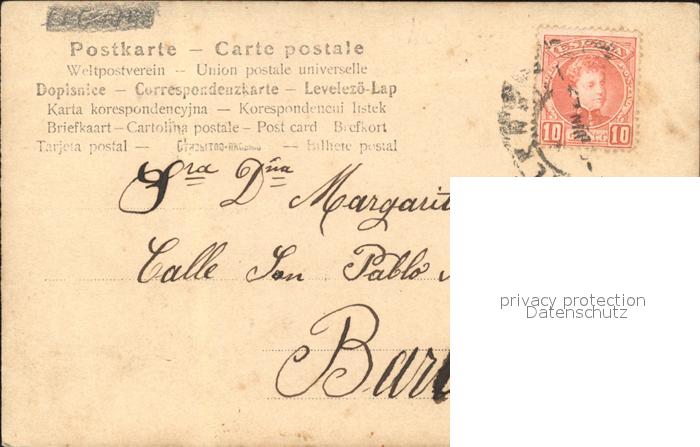 Postkarte – Carte postale
Weltpostverein – Union postale universelle
Dopisnice – Correspondenzkarte – Levelező-Lap
Karta korespondencyjna – Korespondencni listek
Briefkaart – Cartolina postale – Post card Brefkort
Tarjeta postal – – Bilhete postal
ESPAÑA
10 10
Sra Dña Margarit
Calle San Pablo
Bar
privacy protection
Datenschutz